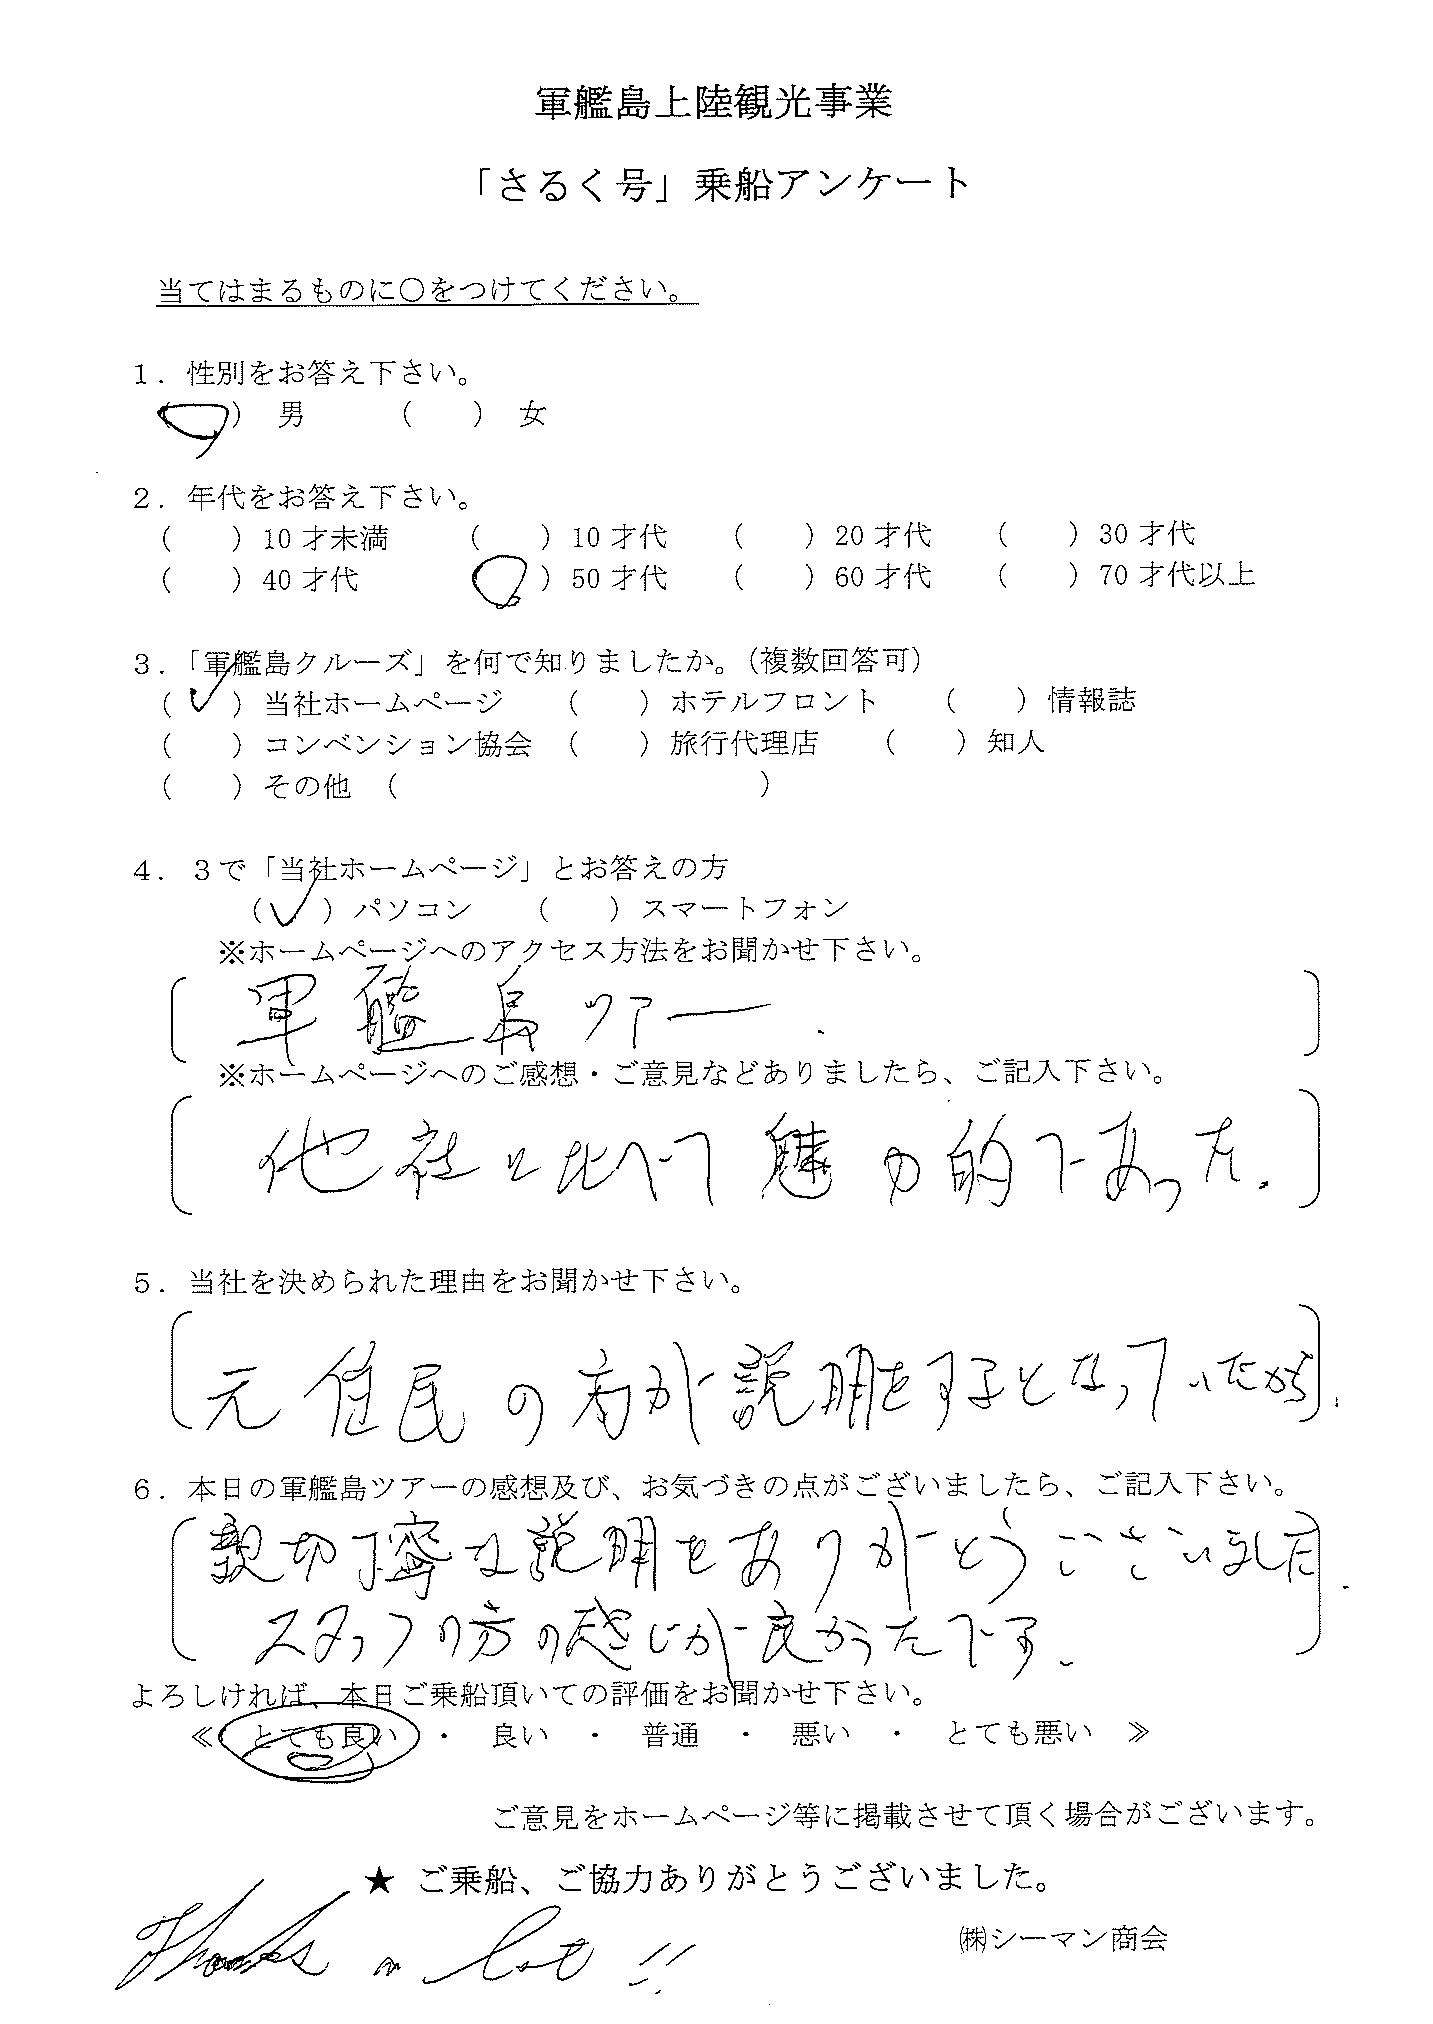 軍艦島上陸観光事業
「さるく号」乗船アンケート
当てはまるものに○をつけてください。
1．性別をお答え下さい。
（ ） 男 （ ） 女
2．年代をお答え下さい。
（ ）10才未満 （ ）10才代 （ ）20才代 （ ）30才代
（ ）40才代 （ ）50才代 （ ）60才代 （ ）70才代以上
3．「軍艦島クルーズ」を何で知りましたか。（複数回答可）
（✓）当社ホームページ （ ）ホテルフロント （ ）情報誌
（ ）コンベンション協会 （ ）旅行代理店 （ ）知人
（ ）その他 （ ）
4．3で「当社ホームページ」とお答えの方
（✓）パソコン （ ）スマートフォン
※ホームページへのアクセス方法をお聞かせ下さい。
軍艦島ツアー．
※ホームページへのご感想・ご意見などありましたら、ご記入下さい。
他社と比べて魅力的であった．
5．当社を決められた理由をお聞かせ下さい。
元住民の方が説明をするとなっていたから．
6．本日の軍艦島ツアーの感想及び、お気づきの点がございましたら、ご記入下さい。
親切丁寧な説明をありがとうございました．
スタッフの方の感じが良かったです．
よろしければ、本日ご乗船頂いての評価をお聞かせ下さい。
≪ とても良い ・ 良い ・ 普通 ・ 悪い ・ とても悪い ≫
ご意見をホームページ等に掲載させて頂く場合がございます。
★ ご乗船、ご協力ありがとうございました。
㈱シーマン商会
Thanks a lot !!